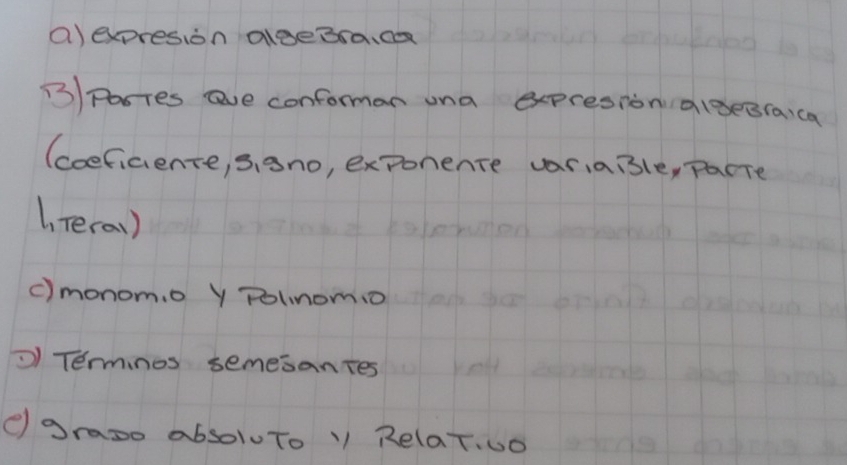 a) expresión algebraica
B) Partes que conforman una expresión algebraica
(coeficiente, signo, exponente variable, parte
literal)
c) monomio y Polinomio
D) Términos semejantes
e) grado absoluto y Relativo